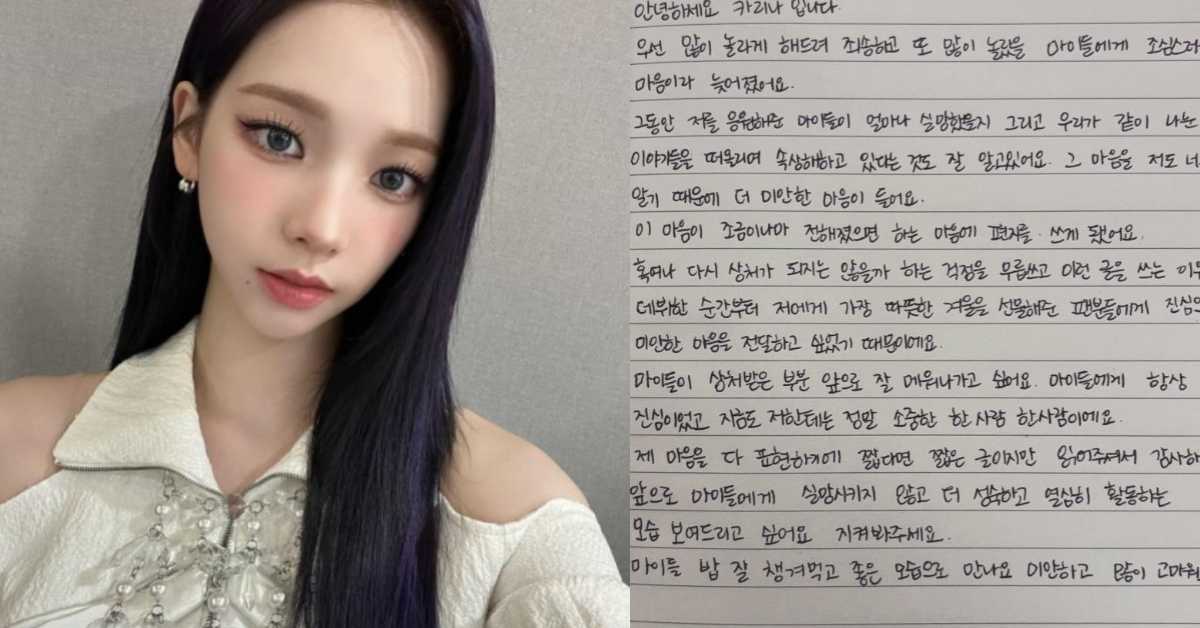 안녕하세요 카리나 입니다.
우선 많이 놀라게 해드려 죄송하고 또 많이 놀랐을 마이들에게 조심스러
마음이라 늦어졌어요.
그동안 저를 응원해준 마이들이 얼마나 실망했을지 그리고 우리가 같이 나눈
이야기들을 떠올리며 속상해하고 있다는 것도 잘 알고있어요. 그 마음을 저도 너
알기 때문에 더 미안한 마음이 들어요.
이 마음이 조금이나마 전해졌으면 하는 마음에 편지를 쓰게 됐어요.
혹여나 다시 상처가 되지는 않을까 하는 걱정을 무릅쓰고 이런 글을 쓰는 이유
데뷔한 순간부터 저에게 가장 따뜻한 겨울을 선물해준 팬분들에게 진심으
미안한 마음을 전달하고 싶었기 때문이에요.
마이들이 상처받은 부분 앞으로 잘 메워나가고 싶어요. 마이들에게 항상
진심이었고 지금도 저한테는 정말 소중한 한 사람 한사람이에요.
제 마음을 다 표현하기에 짧다면 짧은 글이지만 읽어주셔서 감사하
앞으로 마이들에게 실망시키지 않고 더 성숙하고 열심히 활동하는
모습 보여드리고 싶어요 지켜봐주세요.
마이들 밥 잘 챙겨먹고 좋은 모습으로 만나요 미안하고 많이 고마워